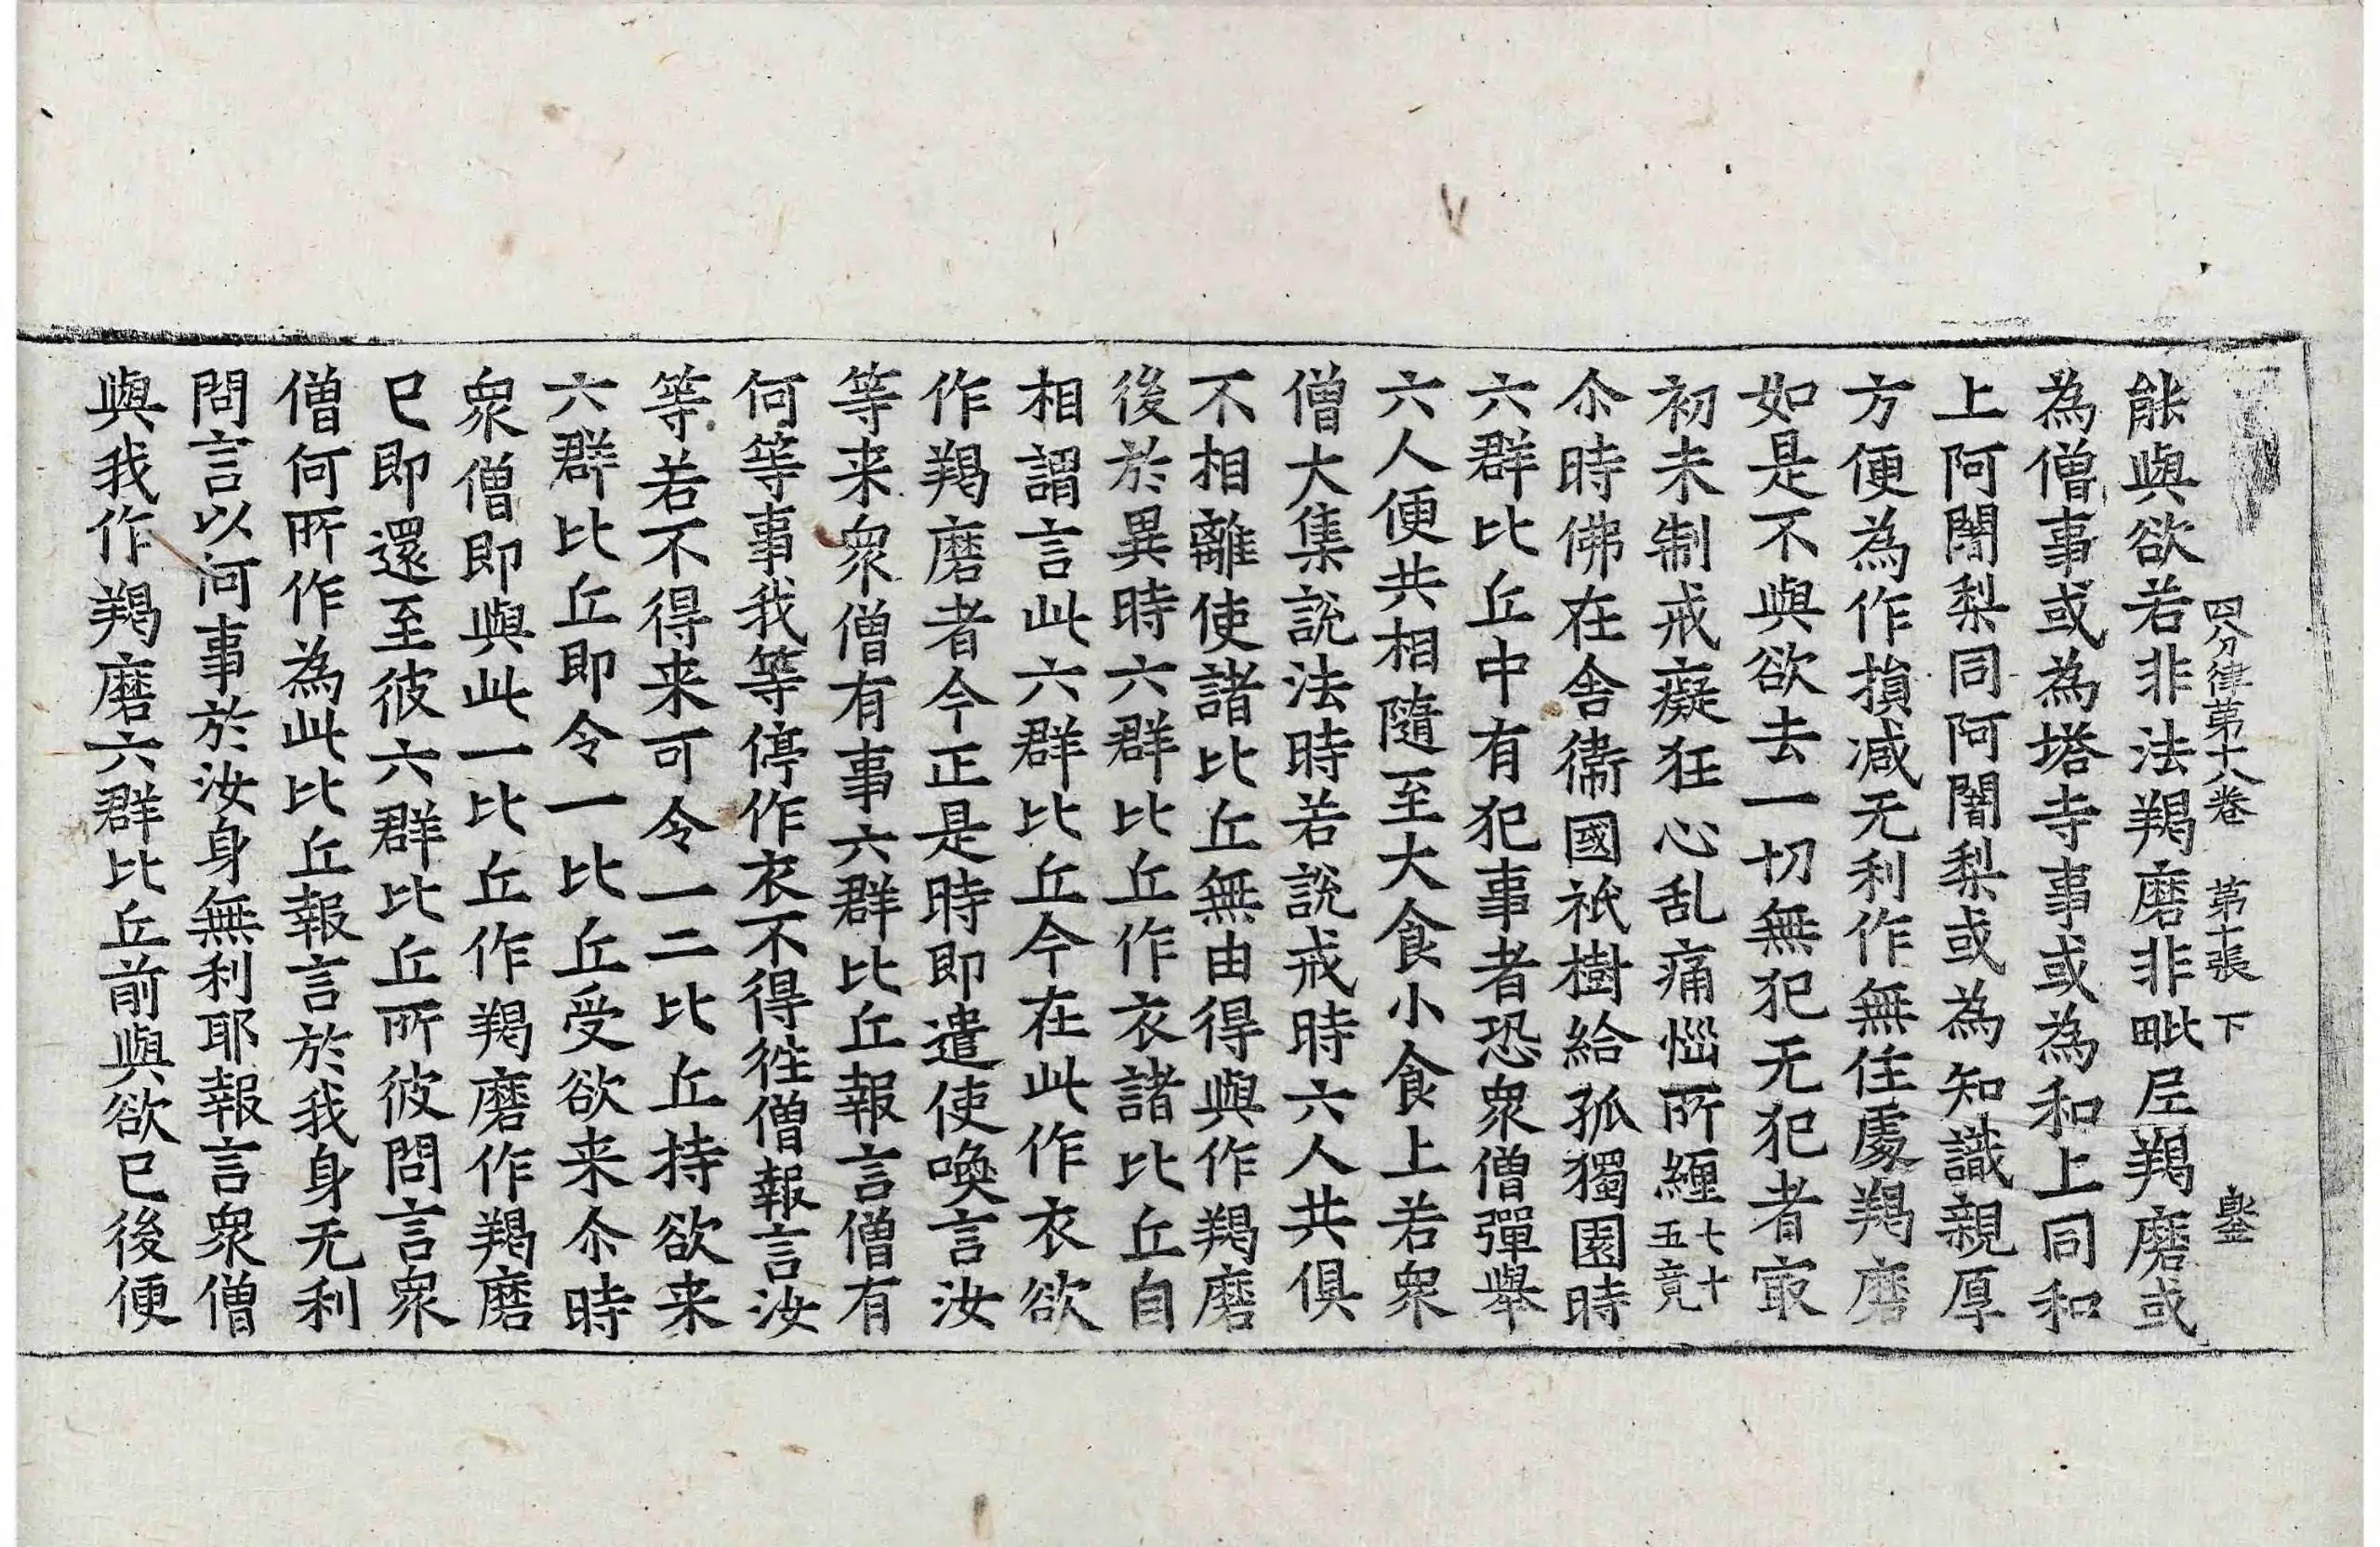 四分律第十八卷　第十張　下
能與欲若非法羯磨非毗尼羯磨或
為僧事或為塔寺事或為和上同和
上阿闍梨同阿闍梨或為知識親厚
方便為作損减无利作無住處羯磨
如是不與欲去一切無犯无犯者㝡
初未制戒癡狂心乱痛惱所纏七十五竟
尒時佛在舍衞國祇樹給孤獨園時
六群比丘中有犯事者恐衆僧彈舉
六人便共相隨至大食小食上若衆
僧大集説法時若説戒時六人共俱
不相離使諸比丘無由得與作羯磨
後於異時六群比丘作衣諸比丘自
相謂言此六群比丘今在此作衣欲
作羯磨者今正是時即遣使喚言汝
等来衆僧有事六群比丘報言僧有
何等事我等停作衣不得徃僧報言汝
等若不得来可令一二比丘持欲来
六群比丘即令一比丘受欲来尒時
衆僧即與此一比丘作羯磨作羯磨
已即還至彼六群比丘所彼問言衆
僧何所作為此比丘報言於我身无利
問言以何事於汝身無利耶報言衆僧
與我作羯磨六群比丘前與欲已後便